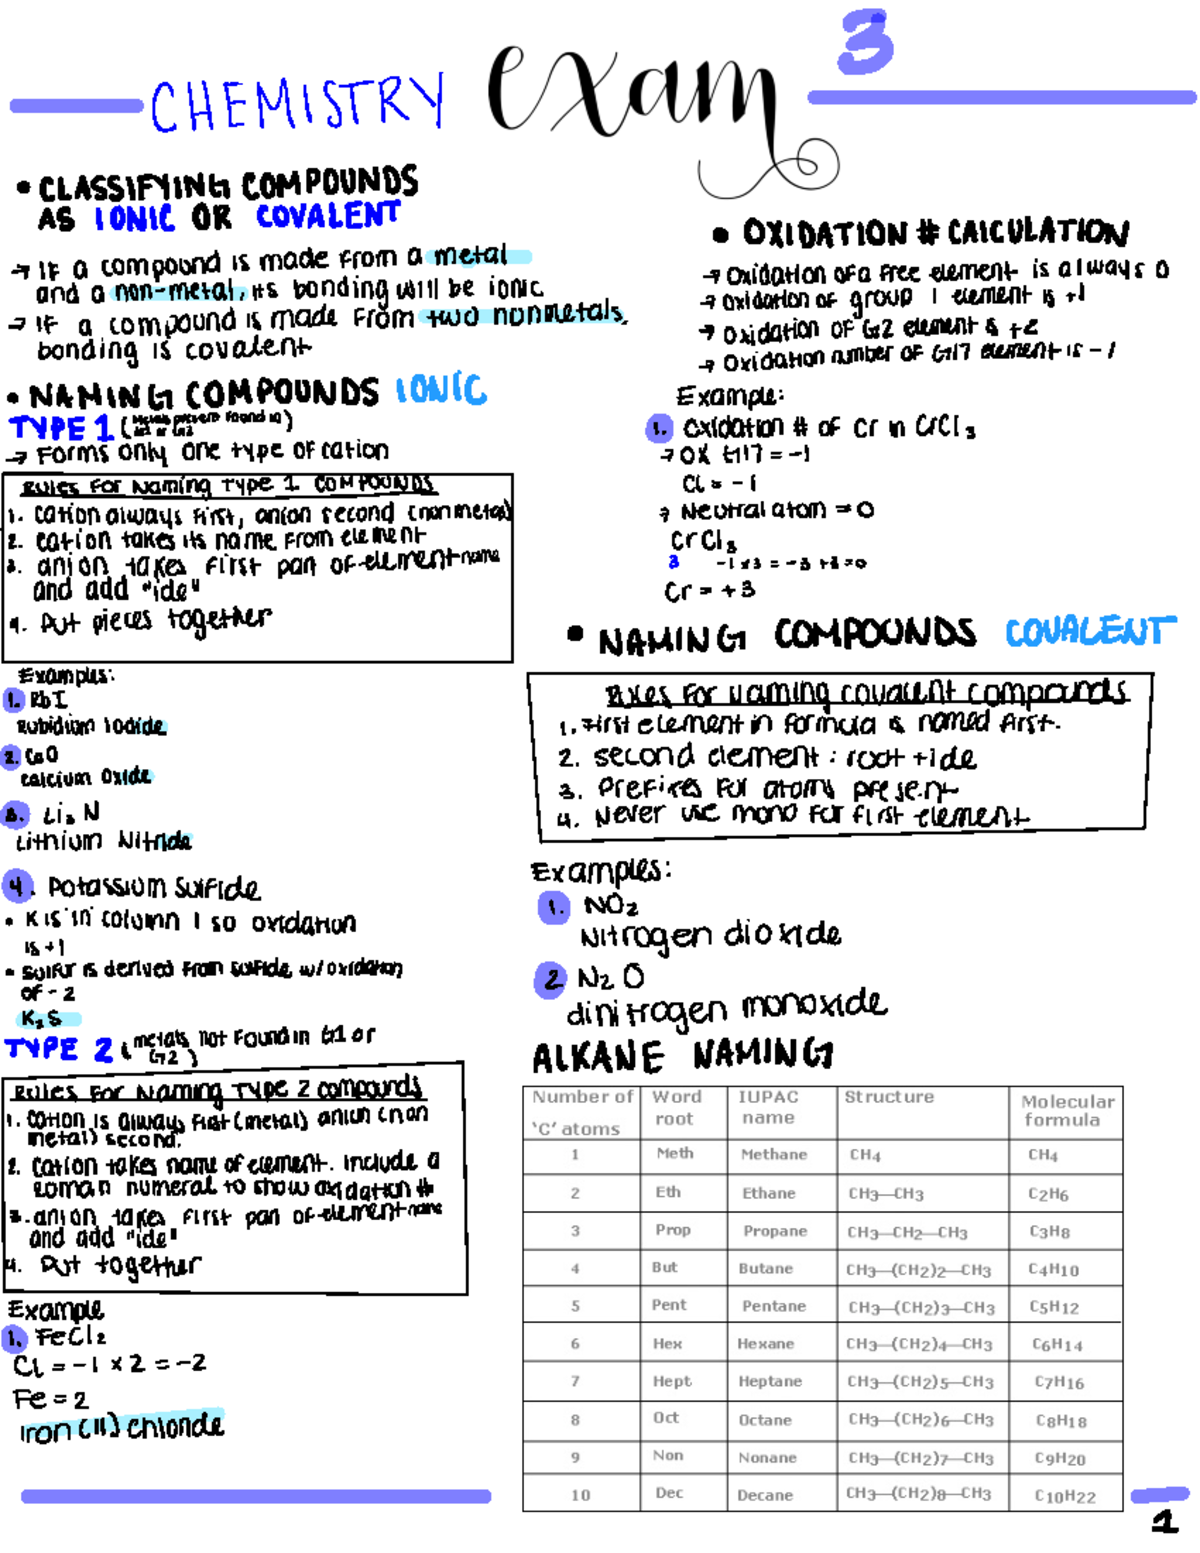 CHEMISTRY exam 3
• CLASSIFYING COMPOUNDS
AS IONIC OR COVALENT
→ IF a compound is made from a metal
and a non-metal, its bonding will be ionic
→ IF a compound is made from two nonmetals,
bonding is covalent
• NAMING COMPOUNDS IONIC
TYPE 1 (Metals present found in
G1 or G2)
→ Forms only one type of cation
Rules for Naming Type 1 COMPOUNDS
1. cation always first, anion second (nonmetal)
2. cation takes its name from element
3. anion takes first part of element name
and add "ide"
4. Put pieces together
Examples:
1. RbI
Rubidium Iodide
2. CaO
calcium Oxide
3. Li₃N
Lithium Nitride
4. Potassium Sulfide
• K is in column 1 so oxidation
is +1
• Sulfur is derived from sulfide, w/oxidation
of -2
K₂S
TYPE 2 (metals not found in G1 or
G2)
Rules for Naming Type 2 compounds
1. cation is always first (metal) anion (non
metal) second.
2. cation takes name of element. include a
Roman numeral to show oxidation #
3. anion takes first part of element name
and add "ide"
4. Put together
Example
1. FeCl₂
Cl = -1 x 2 = -2
Fe = 2
Iron (II) chloride
• OXIDATION # CALCULATION
→ Oxidation of a free element is always 0
→ oxidation of group 1 element is +1
→ oxidation of G2 element is +2
→ Oxidation number of G17 element is -1
Example:
1. Oxidation # of Cr in CrCl₃
→ OX G17 = -1
Cl = -1
→ Neutral atom = 0
CrCl₃
3 -1 x 3 = -3 +3 = 0
Cr = +3
• NAMING COMPOUNDS COVALENT
Rules for Naming covalent compounds
1. First element in formula is named first.
2. second element : root + ide
3. Prefixes for atoms present
4. Never use mono for first element
Examples:
1. NO₂
Nitrogen dioxide
2 N₂O
dinitrogen monoxide
ALKANE NAMING
Number of 'C' atoms Word root IUPAC name Structure Molecular formula
1 Meth Methane CH₄ CH₄
2 Eth Ethane CH₃—CH₃ C₂H₆
3 Prop Propane CH₃—CH₂—CH₃ C₃H₈
4 But Butane CH₃—(CH₂)₂—CH₃ C₄H₁₀
5 Pent Pentane CH₃—(CH₂)₃—CH₃ C₅H₁₂
6 Hex Hexane CH₃—(CH₂)₄—CH₃ C₆H₁₄
7 Hept Heptane CH₃—(CH₂)₅—CH₃ C₇H₁₆
8 Oct Octane CH₃—(CH₂)₆—CH₃ C₈H₁₈
9 Non Nonane CH₃—(CH₂)₇—CH₃ C₉H₂₀
10 Dec Decane CH₃—(CH₂)₈—CH₃ C₁₀H₂₂
1